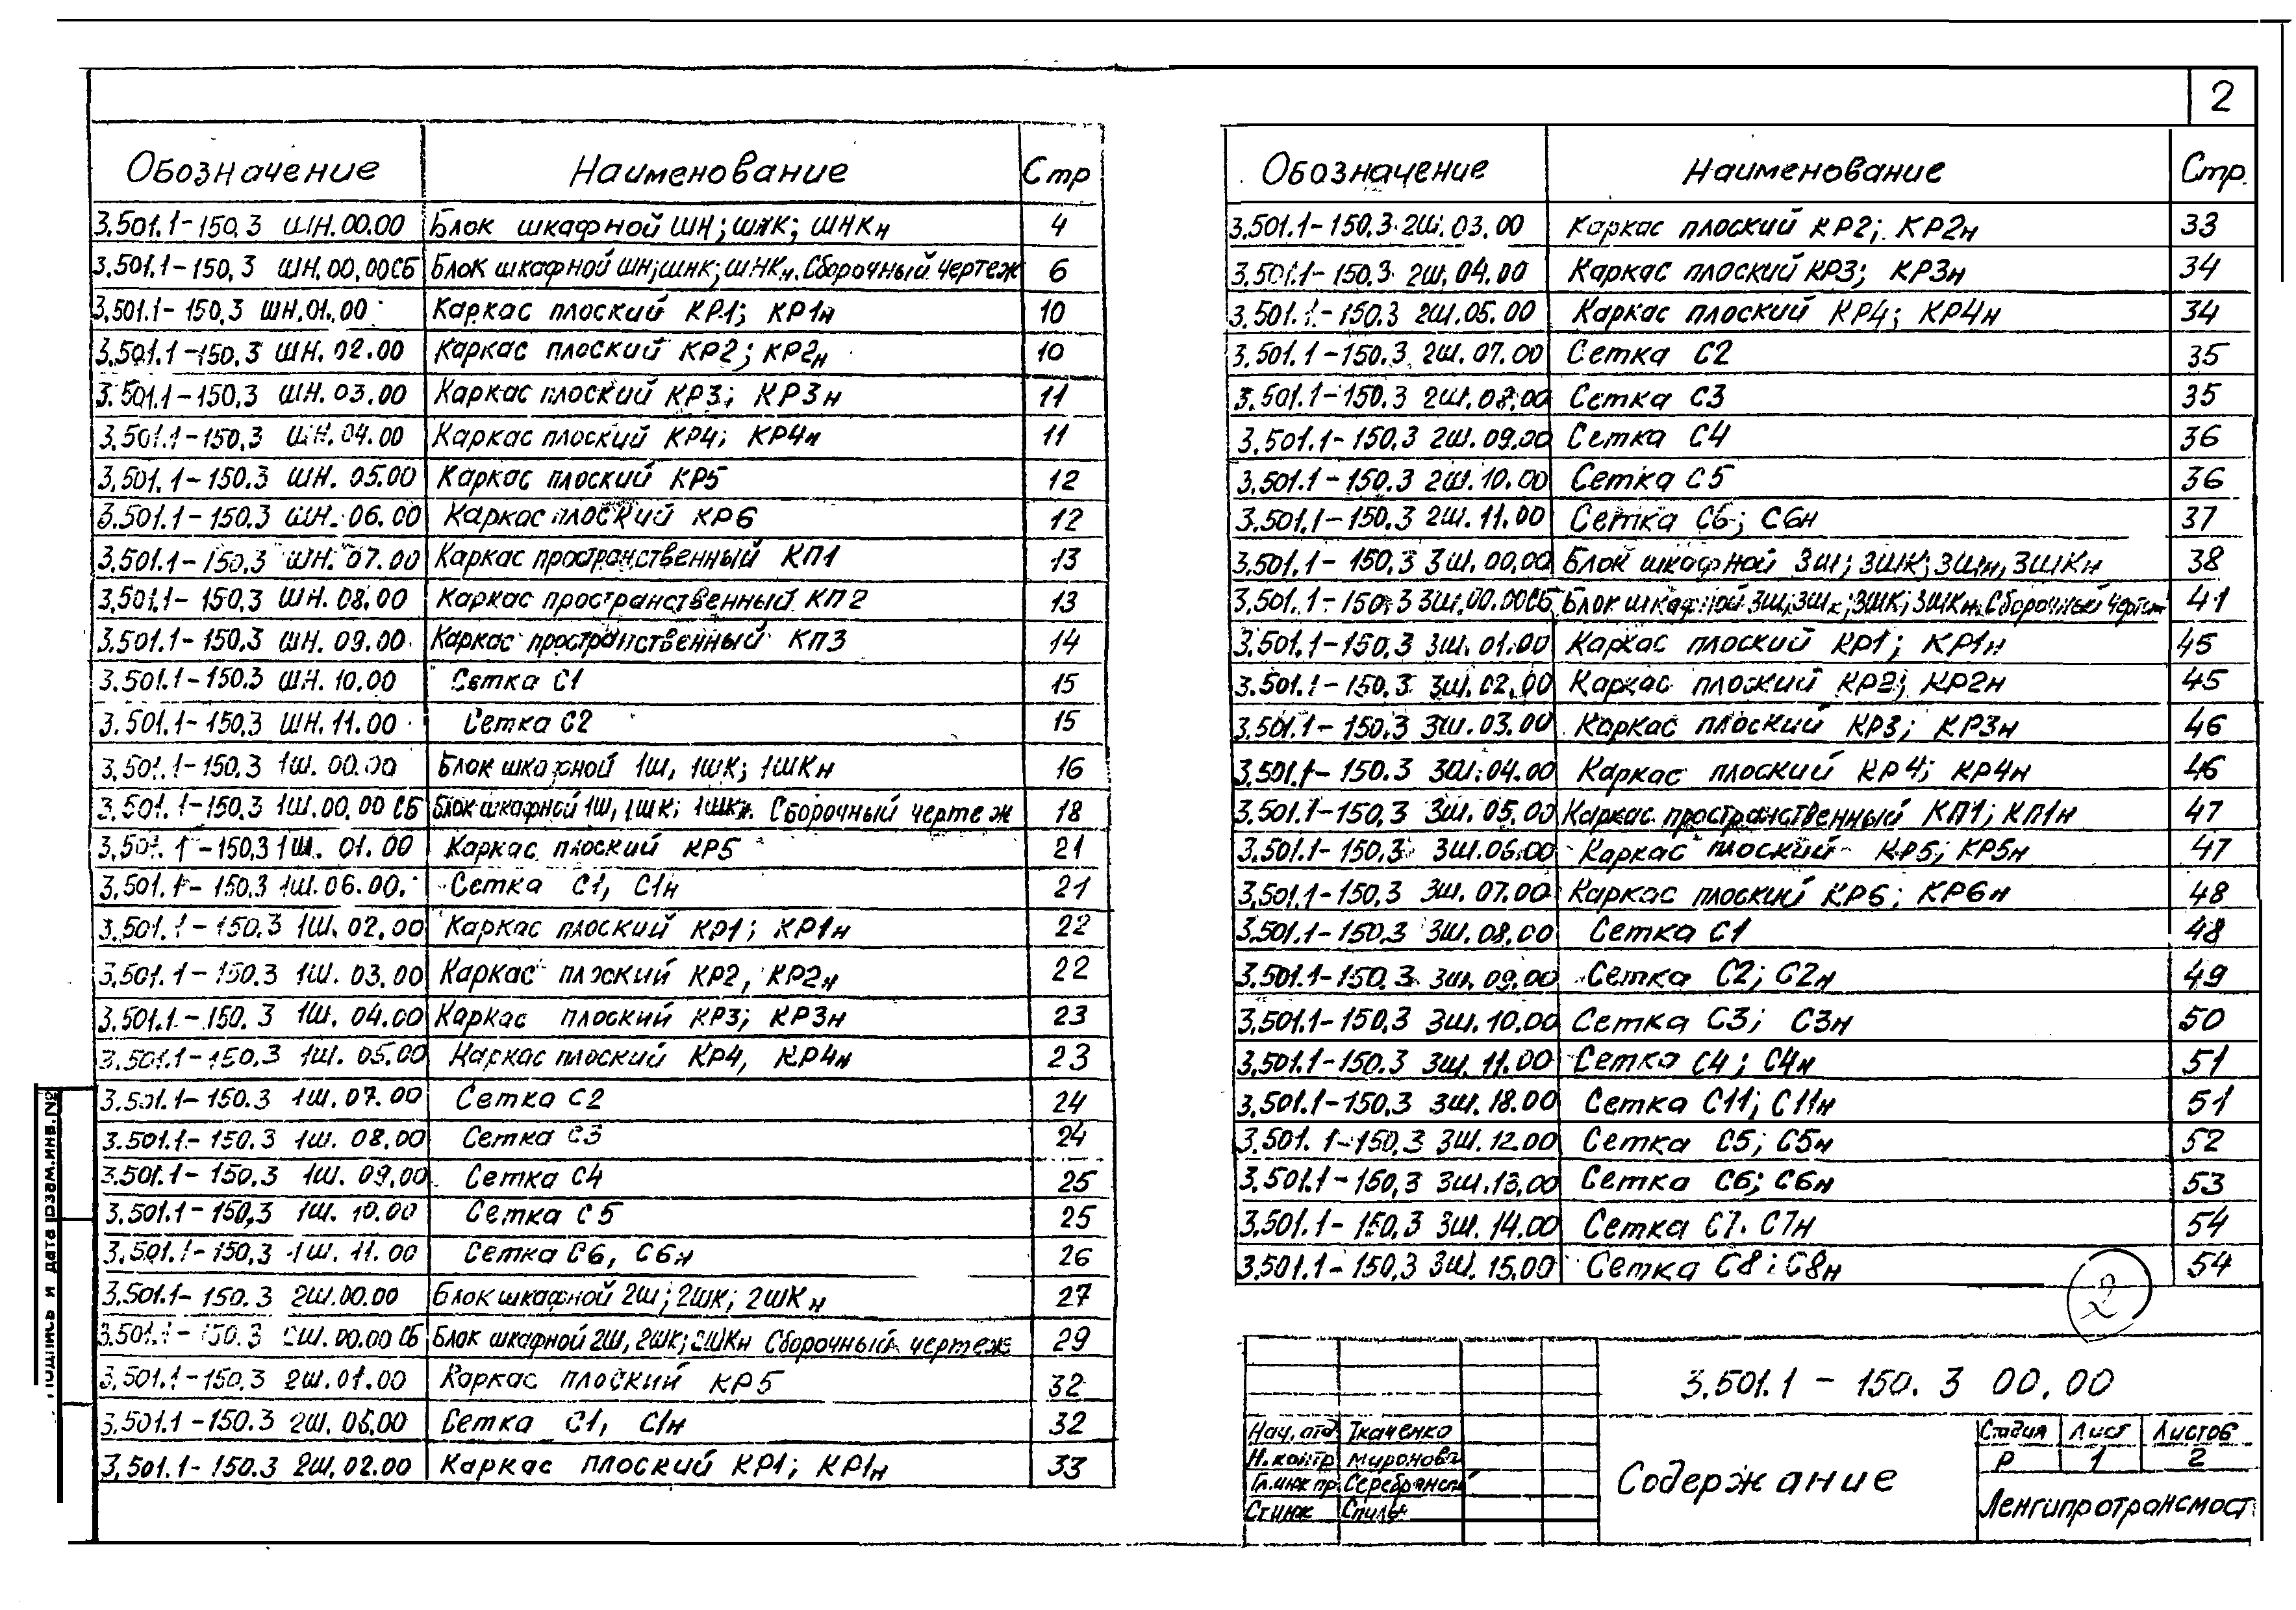 2
Обозначение Наименование Стр
3.501.1-150.3 ШН.00.00 Блок шкафной ШН; ШНК; ШНКн 4
3.501.1-150.3 ШН.00.00СБ Блок шкафной ШН; ШНК; ШНКн. Сборочный чертеж 6
3.501.1-150.3 ШН.01.00 Каркас плоский КР1; КР1н 10
3.501.1-150.3 ШН.02.00 Каркас плоский КР2; КР2н 10
3.501.1-150.3 ШН.03.00 Каркас плоский КР3; КР3н 11
3.501.1-150.3 ШН.04.00 Каркас плоский КР4; КР4н 11
3.501.1-150.3 ШН.05.00 Каркас плоский КР5 12
3.501.1-150.3 ШН.06.00 Каркас плоский КР6 12
3.501.1-150.3 ШН.07.00 Каркас пространственный КП1 13
3.501.1-150.3 ШН.08.00 Каркас пространственный КП2 13
3.501.1-150.3 ШН.09.00 Каркас пространственный КП3 14
3.501.1-150.3 ШН.10.00 Сетка С1 15
3.501.1-150.3 ШН.11.00 Сетка С2 15
3.501.1-150.3 1Ш.00.00 Блок шкафной 1Ш, 1ШК; 1ШКн 16
3.501.1-150.3 1Ш.00.00 СБ Блок шкафной 1Ш, 1ШК; 1ШКн. Сборочный чертеж 18
3.501.1-150.3 1Ш.01.00 Каркас плоский КР5 21
3.501.1-150.3 1Ш.06.00. Сетка С1, С1н 21
3.501.1-150.3 1Ш.02.00 Каркас плоский КР1; КР1н 22
3.501.1-150.3 1Ш.03.00 Каркас плоский КР2, КР2н 22
3.501.1-150.3 1Ш.04.00 Каркас плоский КР3; КР3н 23
3.501.1-150.3 1Ш.05.00 Каркас плоский КР4, КР4н 23
3.501.1-150.3 1Ш.07.00 Сетка С2 24
3.501.1-150.3 1Ш.08.00 Сетка С3 24
3.501.1-150.3 1Ш.09.00 Сетка С4 25
3.501.1-150.3 1Ш.10.00 Сетка С5 25
3.501.1-150.3 1Ш.11.00 Сетка С6, С6н 26
3.501.1-150.3 2Ш.00.00 Блок шкафной 2Ш; 2ШК; 2ШКн 27
3.501.1-150.3 2Ш.00.00 СБ Блок шкафной 2Ш, 2ШК; 2ШКн Сборочный чертеж 29
3.501.1-150.3 2Ш.01.00 Каркас плоский КР5 32
3.501.1-150.3 2Ш.06.00 Сетка С1, С1н 32
3.501.1-150.3 2Ш.02.00 Каркас плоский КР1; КР1н 33
Обозначение Наименование Стр.
3.501.1-150.3 2Ш.03.00 Каркас плоский КР2; КР2н 33
3.501.1-150.3 2Ш.04.00 Каркас плоский КР3; КР3н 34
3.501.1-150.3 2Ш.05.00 Каркас плоский КР4; КР4н 34
3.501.1-150.3 2Ш.07.00 Сетка С2 35
3.501.1-150.3 2Ш.08.00 Сетка С3 35
3.501.1-150.3 2Ш.09.00 Сетка С4 36
3.501.1-150.3 2Ш.10.00 Сетка С5 36
3.501.1-150.3 2Ш.11.00 Сетка С6; С6н 37
3.501.1-150.3 3Ш.00.00 Блок шкафной 3Ш; 3ШК; 3Шн, 3ШКн 38
3.501.1-150.3 3Ш.00.00СБ Блок шкафной 3Ш; 3ШК; 3ШКн. Сборочный 41
3.501.1-150.3 3Ш.01.00 Каркас плоский КР1; КР1н 45
3.501.1-150.3 3Ш.02.00 Каркас плоский КР2; КР2н 45
3.501.1-150.3 3Ш.03.00 Каркас плоский КР3; КР3н 46
3.501.1-150.3 3Ш.04.00 Каркас плоский КР4; КР4н 46
3.501.1-150.3 3Ш.05.00 Каркас пространственный КП1; КП1н 47
3.501.1-150.3 3Ш.06.00 Каркас плоский КР5; КР5н 47
3.501.1-150.3 3Ш.07.00 Каркас плоский КР6; КР6н 48
3.501.1-150.3 3Ш.08.00 Сетка С1 48
3.501.1-150.3 3Ш.09.00 Сетка С2; С2н 49
3.501.1-150.3 3Ш.10.00 Сетка С3; С3н 50
3.501.1-150.3 3Ш.11.00 Сетка С4; С4н 51
3.501.1-150.3 3Ш.18.00 Сетка С11; С11н 51
3.501.1-150.3 3Ш.12.00 Сетка С5; С5н 52
3.501.1-150.3 3Ш.13.00 Сетка С6; С6н 53
3.501.1-150.3 3Ш.14.00 Сетка С7. С7н 54
3.501.1-150.3 3Ш.15.00 Сетка С8; С8н 54
2
3.501.1-150.3 00.00
Нач. отд Ткаченко
Н.контр Миронова
Гл.инж пр. Серебрянский
Ст инж
Содержание
Стадия Лист Листов
Р 1 2
Ленгипротрансмост
Подпись и дата Взам.инв.№